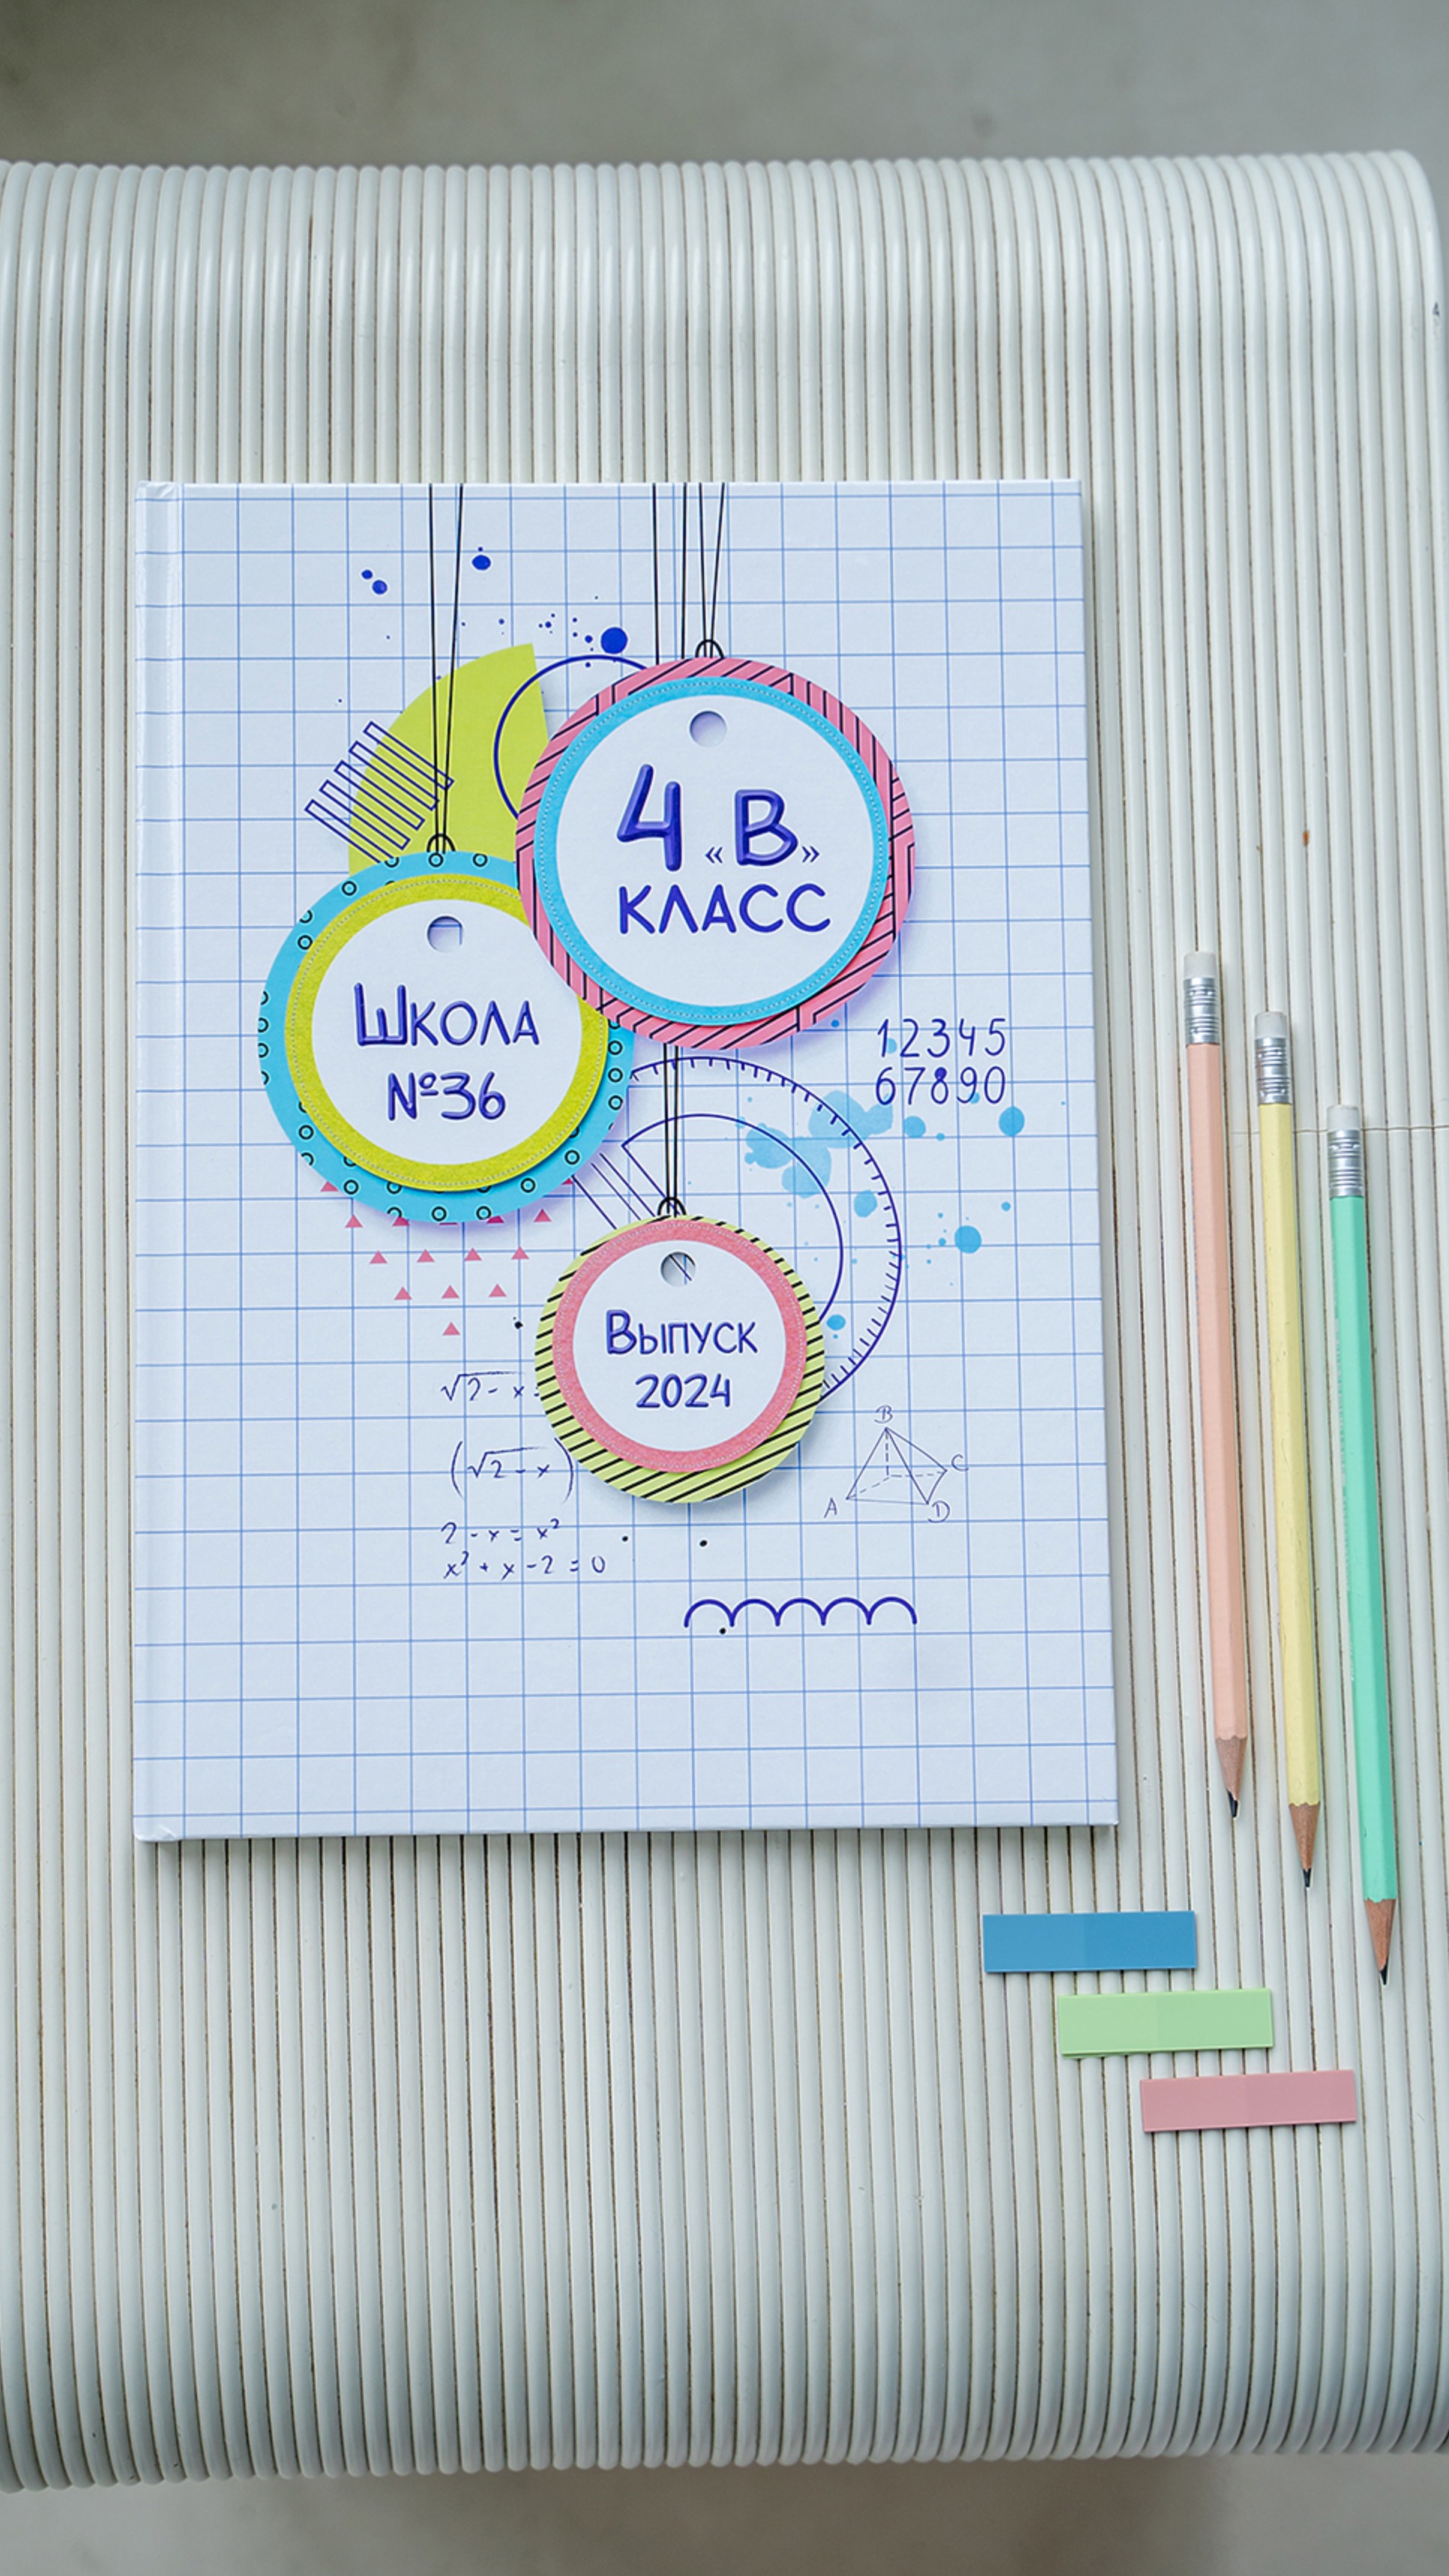 4 «В»
класс
Школа
№36
12345
67890
Выпуск
2024
√2 - x =
(√2 - x)
2 - x = x²
x² + x - 2 = 0
B
C
A
D